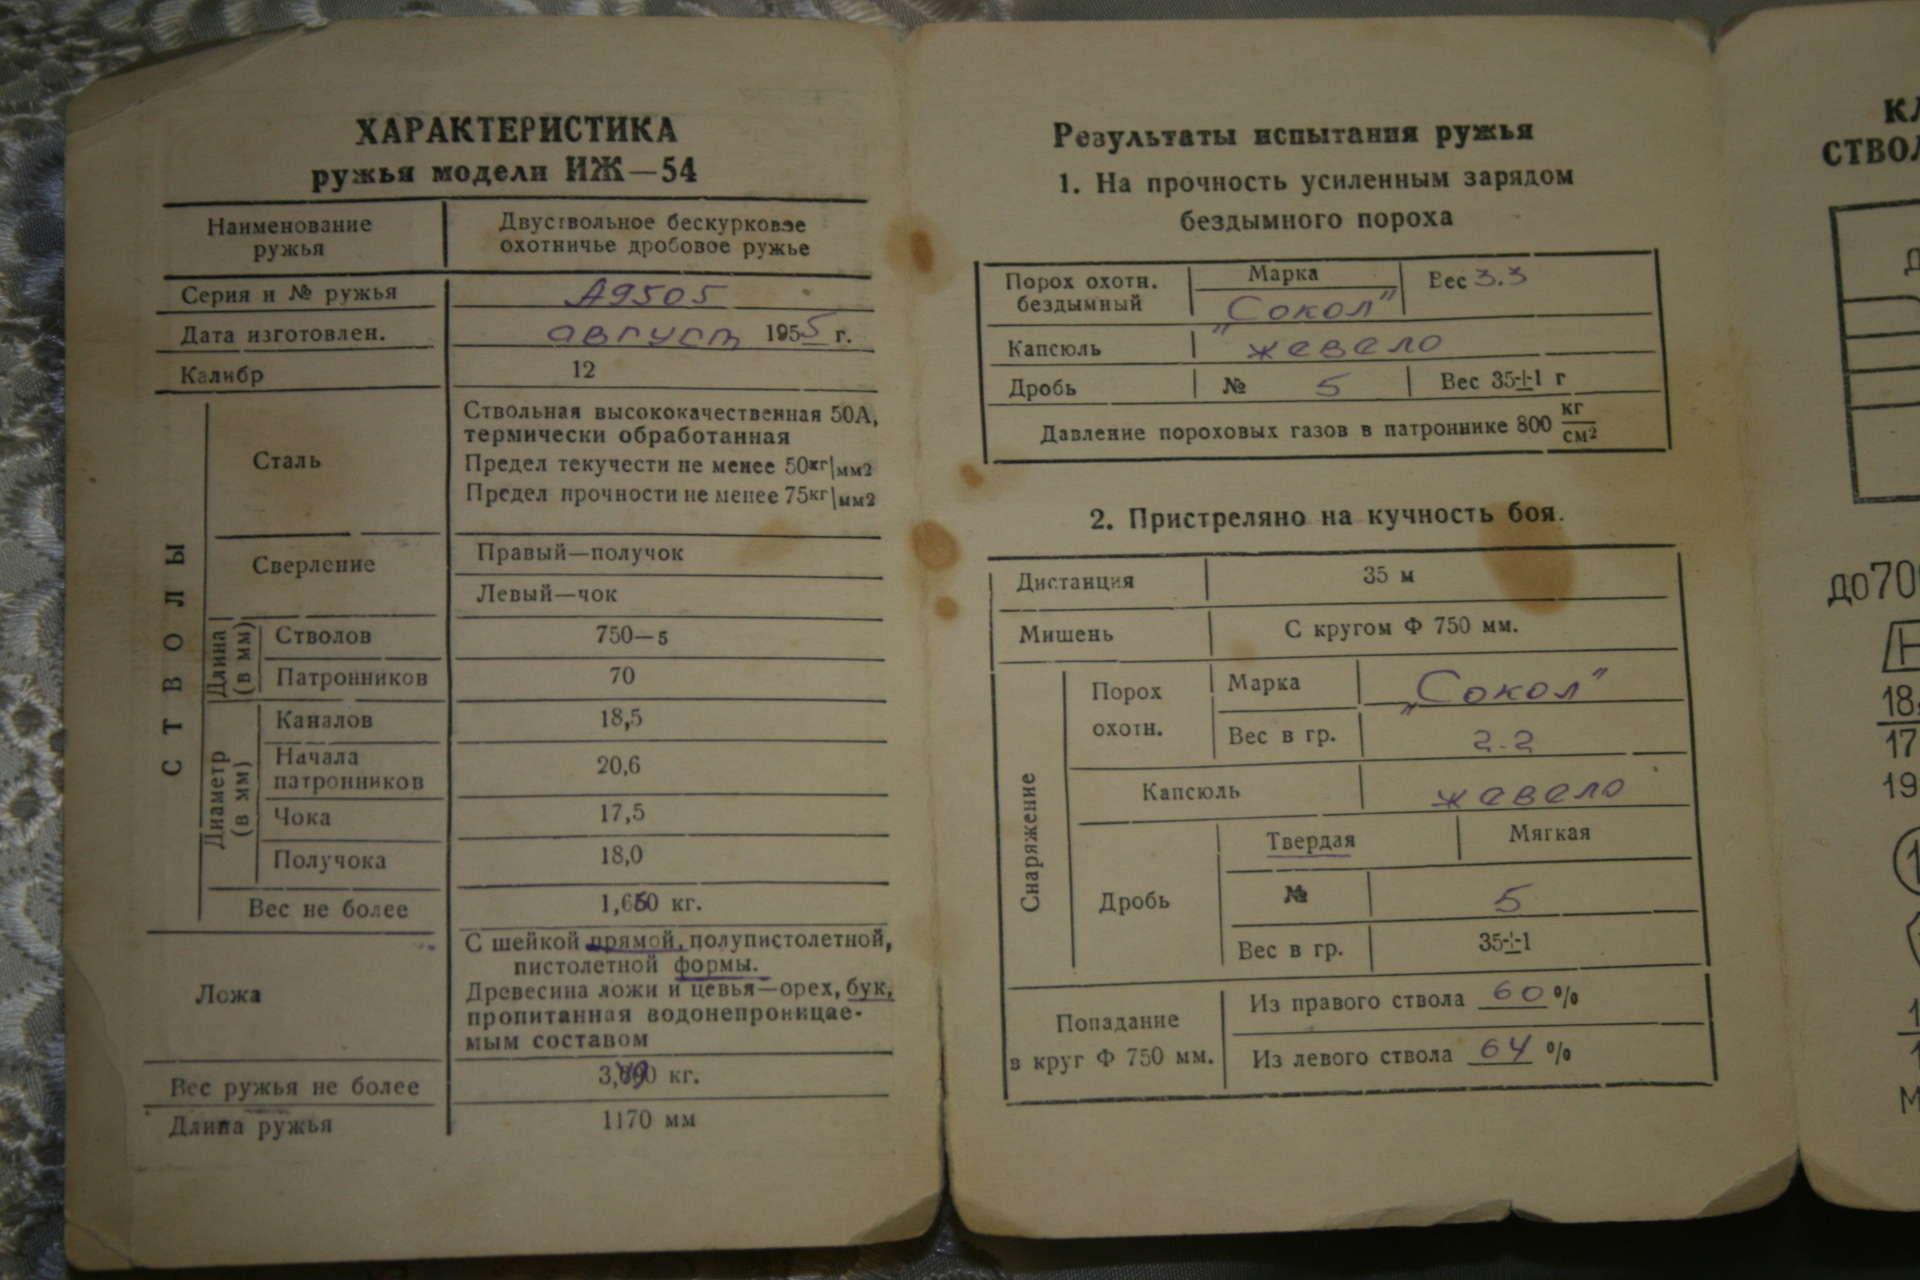 ХАРАКТЕРИСТИКА
ружья модели ИЖ—54
Наименование ружья
Двуствольное бескурковое
охотничье дробовое ружье
Серия и № ружья А9505
Дата изготовлен. август 1955 г.
Калибр 12
СТВОЛЫ
Сталь
Ствольная высококачественная 50А,
термически обработанная
Предел текучести не менее 50кг|мм2
Предел прочности не менее 75кг|мм2
Сверление
Правый—получок
Левый—чок
Длина (в мм)
Стволов 750—5
Патронников 70
Диаметр (в мм)
Каналов 18,5
Начала патронников 20,6
Чока 17,5
Получока 18,0
Вес не более кг.
Ложа
С шейкой прямой, полупистолетной,
пистолетной формы.
Древесина ложи и цевья—орех, бук,
пропитанная водонепроницае-
мым составом
Вес ружья не более кг.
Длина ружья 1170 мм
Результаты испытания ружья
1. На прочность усиленным зарядом
бездымного пороха
Порох охотн.
бездымный
Марка
„Сокол"
Вес 3.3
Капсюль жевело
Дробь № 5 Вес 35±1 г
Давление пороховых газов в патроннике 800 кг/см2
2. Пристреляно на кучность боя.
Дистанция 35 м
Мишень С кругом Ф 750 мм.
Снаряжение
Порох
охотн.
Марка „Сокол"
Вес в гр. 2.2
Капсюль жевело
Дробь
Твердая Мягкая
№ 5
Вес в гр. 35±1
Попадание
в круг Ф 750 мм.
Из правого ствола 60 %
Из левого ствола 64 %
до 700